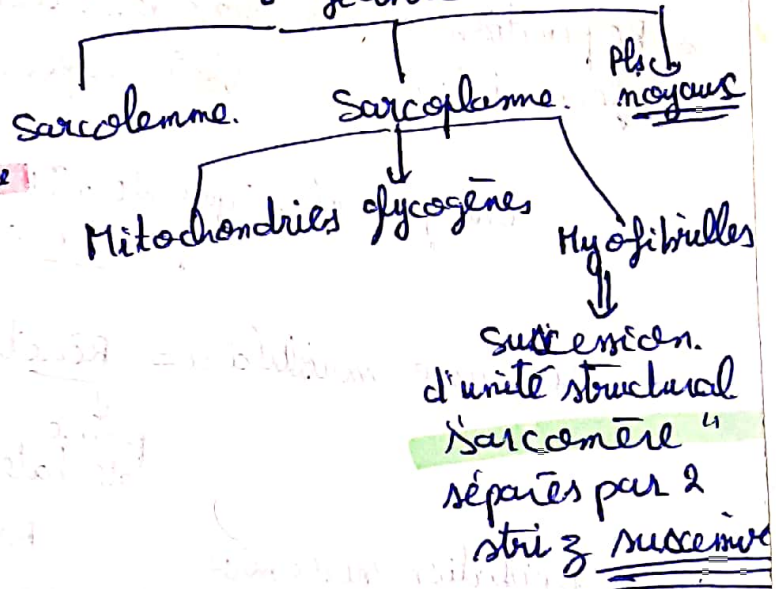 Pls
Sarcolemme. Sarcoplasme. noyaux
Mitochondries glycogènes
Myofibrilles
succession.
d'unité structural
"sarcomère"
séparés par 2
stri z successive